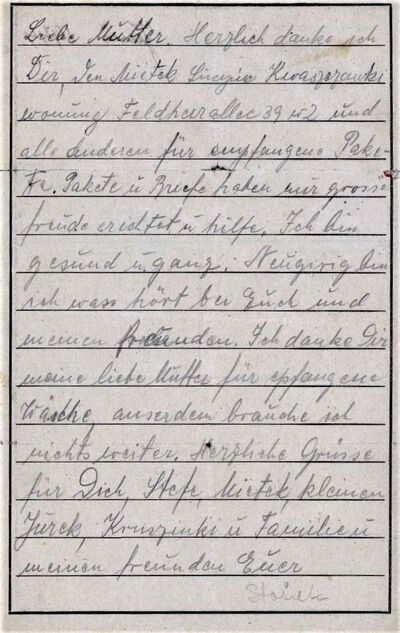 Liebe Mutter. Herzlich danke ich
Dir, den Mietek Lucyna Kwaszczanki
wonung Feldherallee 39 w 2 und
alle anderen für empfangene Pake-
te. Pakete u Briefe haben mir grosse
freude erichtet u hilfe. Ich bin
gesund u ganz. Neugirig bin
ich wass hört bei Euch und
meinen freunden. Ich danke Dir
meine liebe Mutter für epfangene
Wäsche, auserdem brauche ich
nichts weiter. Herzliche Grüsse
für Dich, Stefe, Mietek, kleinen
Jurek, Kruszinki u Familie u
meinen freunden Euer